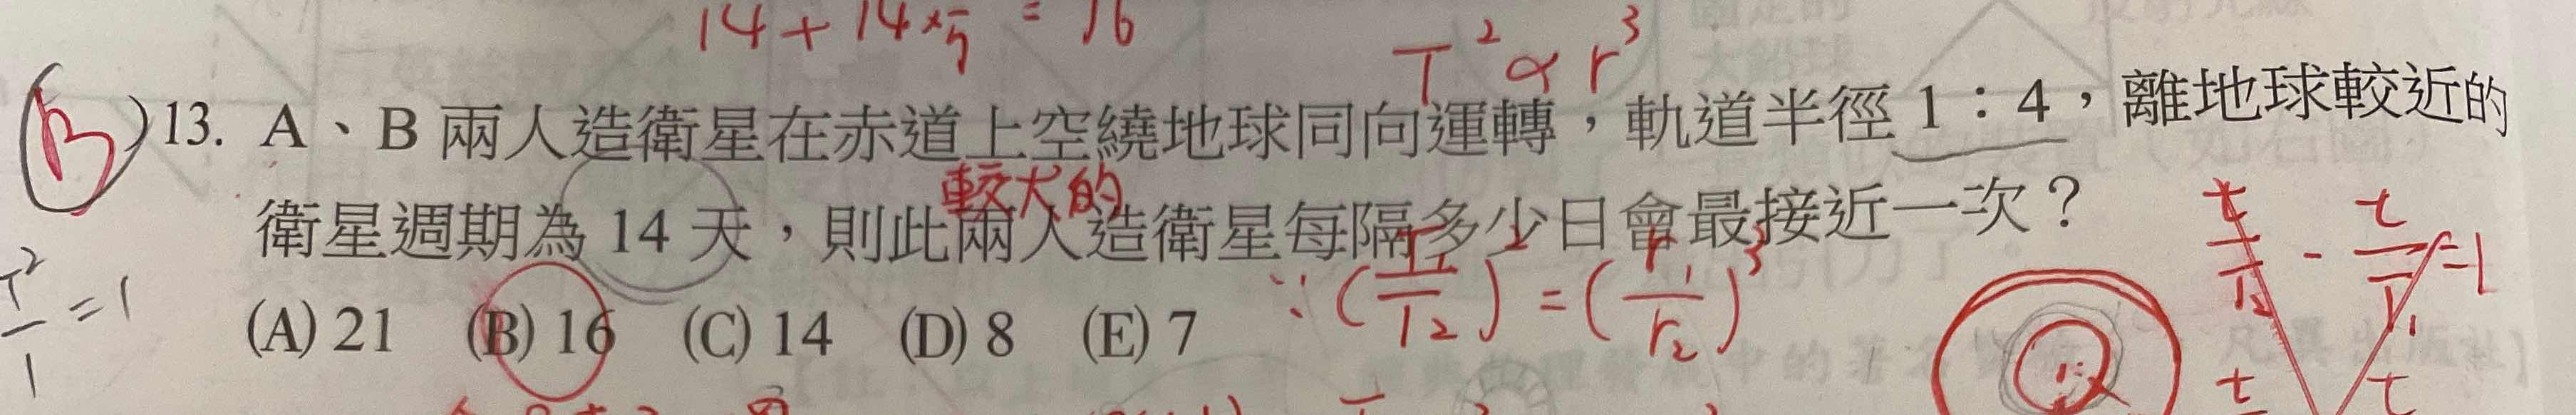 14 + 14 × = 16
T² ∝ r³
(B) 13. A、B 兩人造衛星在赤道上空繞地球同向運轉，軌道半徑 1：4，離地球較近的
較大的
衛星週期為 14 天，則此兩人造衛星每隔多少日會最接近一次？
(A) 21 (B) 16 (C) 14 (D) 8 (E) 7
∵ (T₁/T₂) = (r₁/r₂)³
t/T₂ - t/T₁ = 1
T²/1 = 1